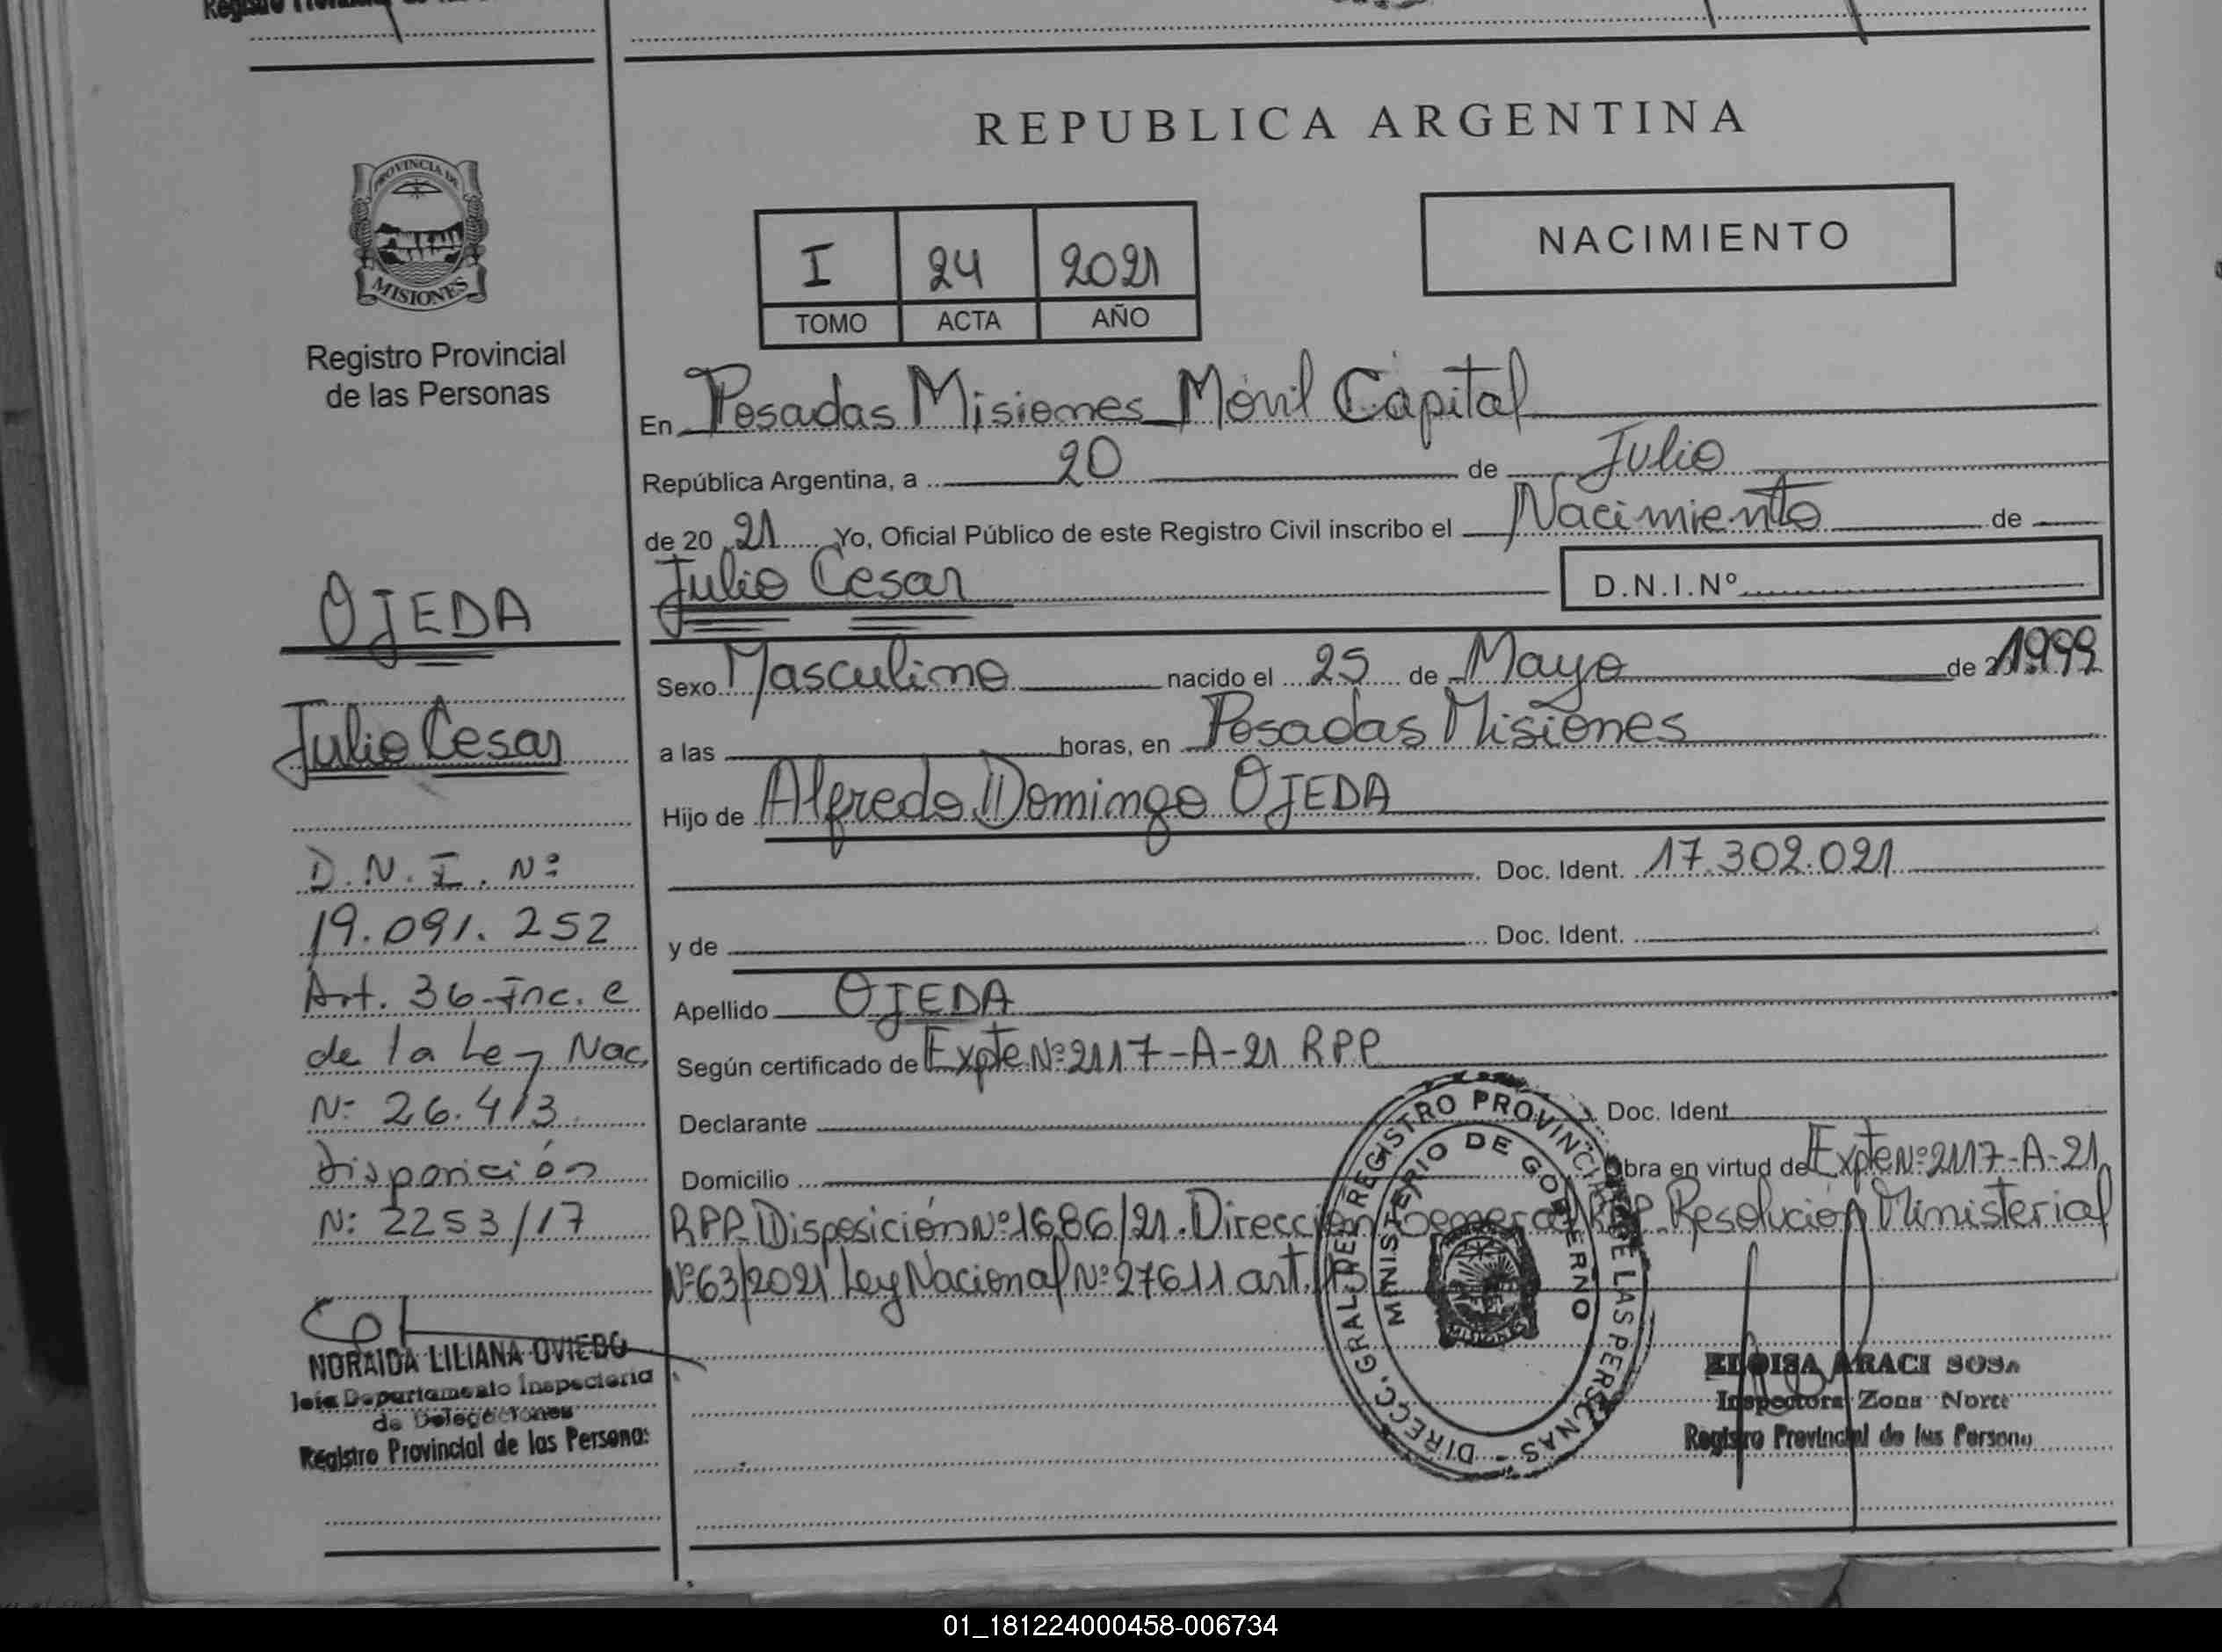 REPUBLICA ARGENTINA
PROVINCIA DE
MISIONES
Registro Provincial
de las Personas
OJEDA
Julio Cesar
D.N.I. Nº
19.091.252
Art. 36-Inc. e
de la Ley Nac.
Nº 26.413.
Disposición
Nº 2253/17
NORAIDA LILIANA OVIEDO
Jefa Departamento Inspectoria
de Delegaciones
Registro Provincial de las Personas
I 24 2021
TOMO ACTA AÑO
NACIMIENTO
En Posadas Misiones Móvil Capital
República Argentina, a 20 de Julio
de 20 21 Yo, Oficial Público de este Registro Civil inscribo el Nacimiento de
Julio Cesar D.N.I.Nº
Sexo Masculino nacido el 25 de Mayo de 1999
a las horas, en Posadas Misiones
Hijo de Alfredo Domingo OJEDA
Doc. Ident. 17.302.021
y de Doc. Ident.
Apellido OJEDA
Según certificado de Expte Nº 2117-A-21 RPP
Declarante Doc. Ident.
Domicilio Obra en virtud de Expte Nº 2117-A-21
RPP. Disposición Nº 1686/21. Dirección General RPP. Resolución Ministerial
Nº 63/2021 Ley Nacional Nº 27611 art.
DIRECC. GRAL. DEL REGISTRO PROVINCIAL DE LAS PERSONAS
MINISTERIO DE GOBIERNO
MISIONES
ELOISA ARACI SOSA
Inspectora Zona Norte
Registro Provincial de las Persona
01_181224000458-006734